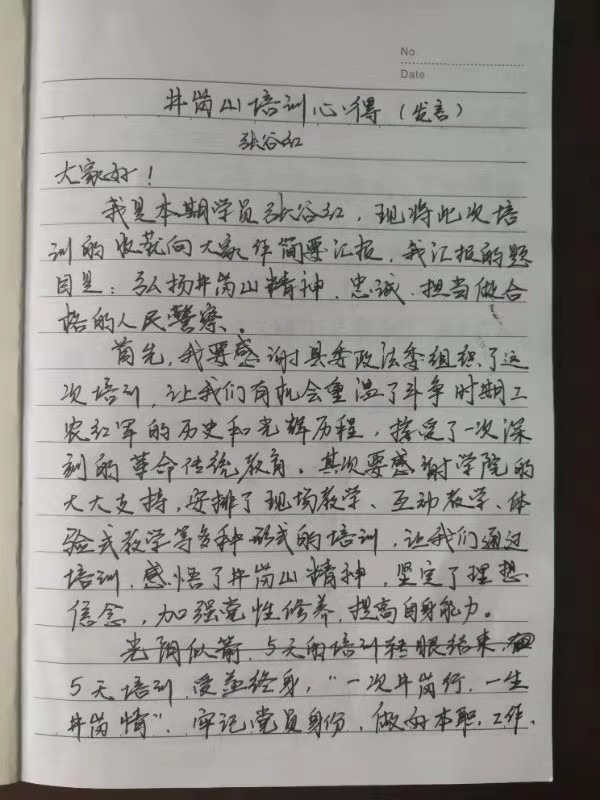 No
Date
井岗山培训心得（发言）
张谷红
大家好！
我是本期学员张谷红，现将此次培
训的收获向大家作简要汇报，我汇报的题
目是：弘扬井岗山精神、忠诚、担当做合
格的人民警察。
首先，我要感谢县委政法委组织了这
次培训，让我们有机会重温了斗争时期工
农红军的历史和光辉历程，接受了一次深
刻的革命传统教育。其次要感谢学院的
大大支持，安排了现场教学、互动教学、体
验式教学等多种形式的培训，让我们通过
培训，感悟了井岗山精神，坚定了理想
信念，加强党性修养，提高自身能力。
光阴似箭，5天的培训转眼结束，
5天培训，受益终身，“一次井岗行，一生
井岗情”，牢记党员身份，做好本职，工作，